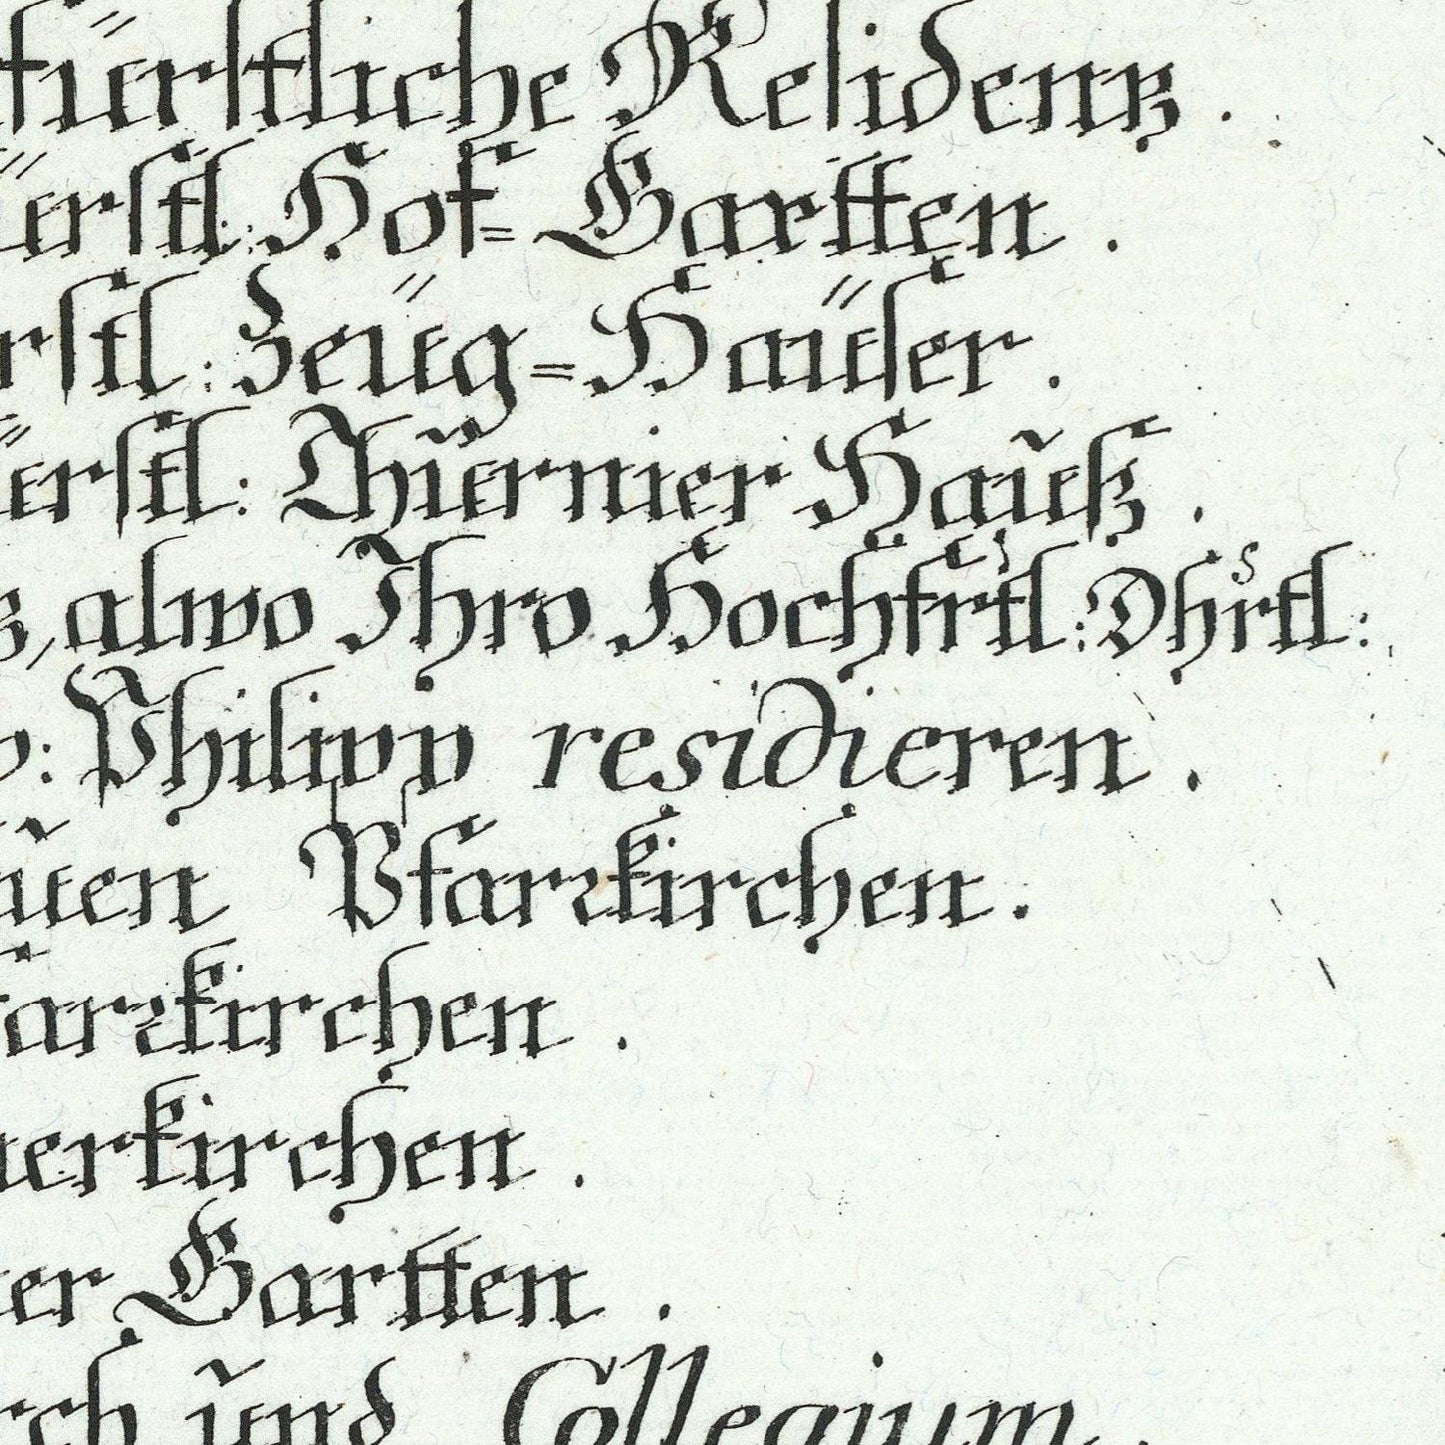 fürstliche Residentz.
ürstl: Hof=Gartten.
rstl: Zeüg=Haüser.
ürstl: Thurnier Hauß.
alwo Ihro Hochfrtl: Dhrtl:
Philipp residieren.
Pfarrkirchen.
farrkirchen.
erkirchen.
er Gartten.
rch und Collegium.